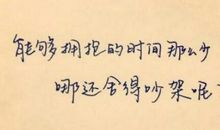 能够拥抱的时间那么少
哪还舍得吵架呢